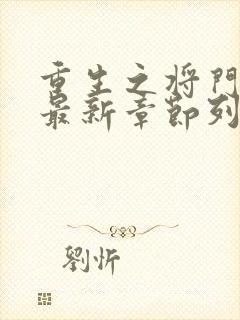 重生之将門
最新章節列
劉忻